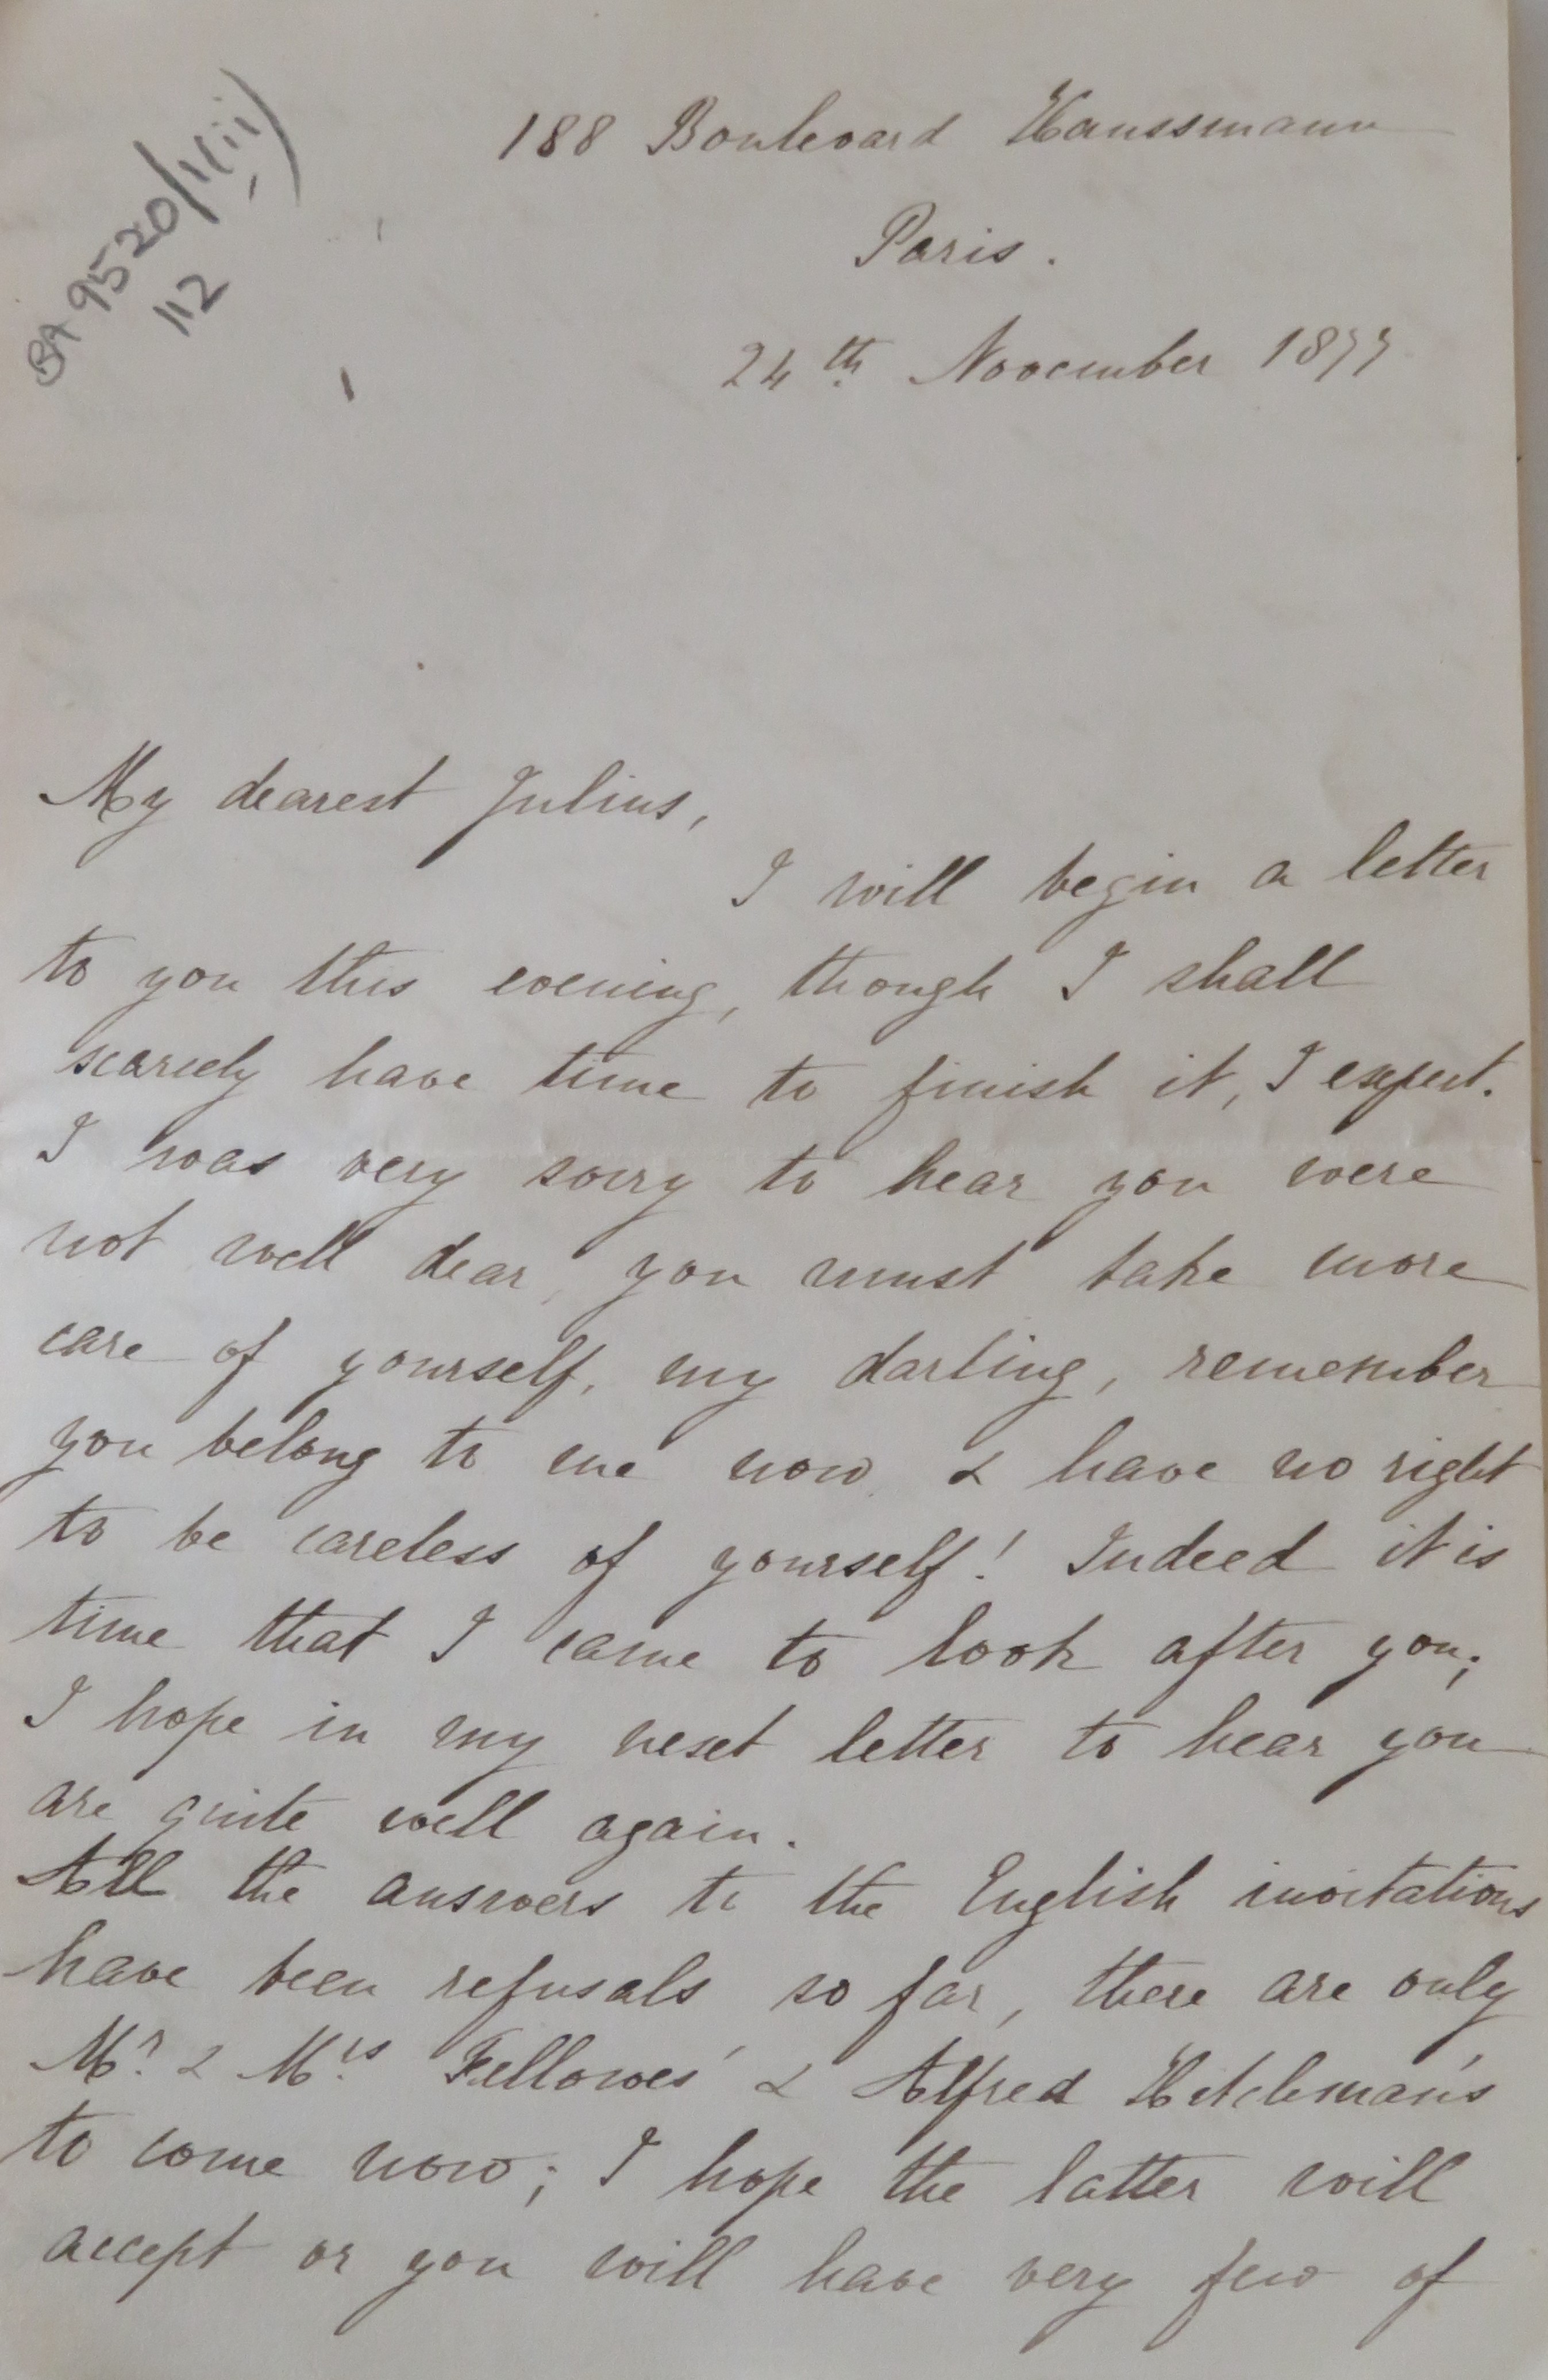 BA 9520/1(ii)
112
188 Boulevard Haussmann
Paris.
24th November 1877
My dearest Julius,
I will begin a letter
to you this evening, though I shall
scarcely have time to finish it, I expect.
I was very sorry to hear you were
not well dear, you must take more
care of yourself, my darling, remember
you belong to me now & have no right
to be careless of yourself! Indeed it is
time that I came to look after you;
I hope in my next letter to hear you
are quite well again.
All the answers to the English invitations
have been refusals so far, there are only
Mr. & Mrs. Fellowes' & Alfred
to come now; I hope the latter will
accept or you will have very few of